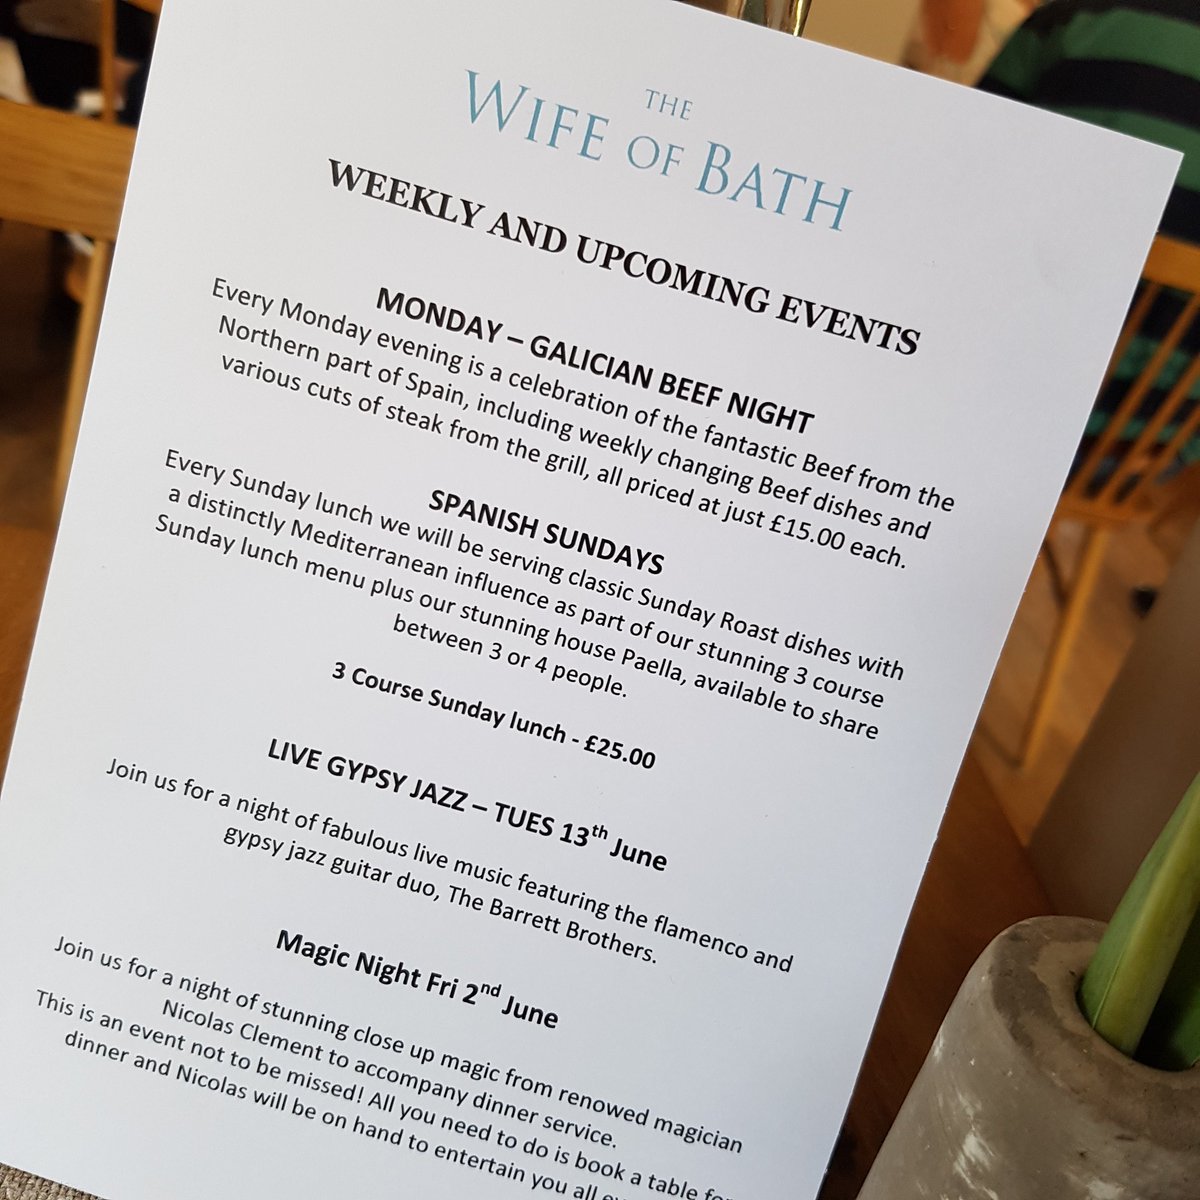 THE
WIFE OF BATH
WEEKLY AND UPCOMING EVENTS
MONDAY – GALICIAN BEEF NIGHT
Every Monday evening is a celebration of the fantastic Beef from the
Northern part of Spain, including weekly changing Beef dishes and
various cuts of steak from the grill, all priced at just £15.00 each.
SPANISH SUNDAYS
Every Sunday lunch we will be serving classic Sunday Roast dishes with
a distinctly Mediterranean influence as part of our stunning 3 course
Sunday lunch menu plus our stunning house Paella, available to share
between 3 or 4 people.
3 Course Sunday lunch - £25.00
LIVE GYPSY JAZZ – TUES 13th June
Join us for a night of fabulous live music featuring the flamenco and
gypsy jazz guitar duo, The Barrett Brothers.
Magic Night Fri 2nd June
Join us for a night of stunning close up magic from renowed magician
Nicolas Clement to accompany dinner service.
This is an event not to be missed! All you need to do is book a table for
dinner and Nicolas will be on hand to entertain you all